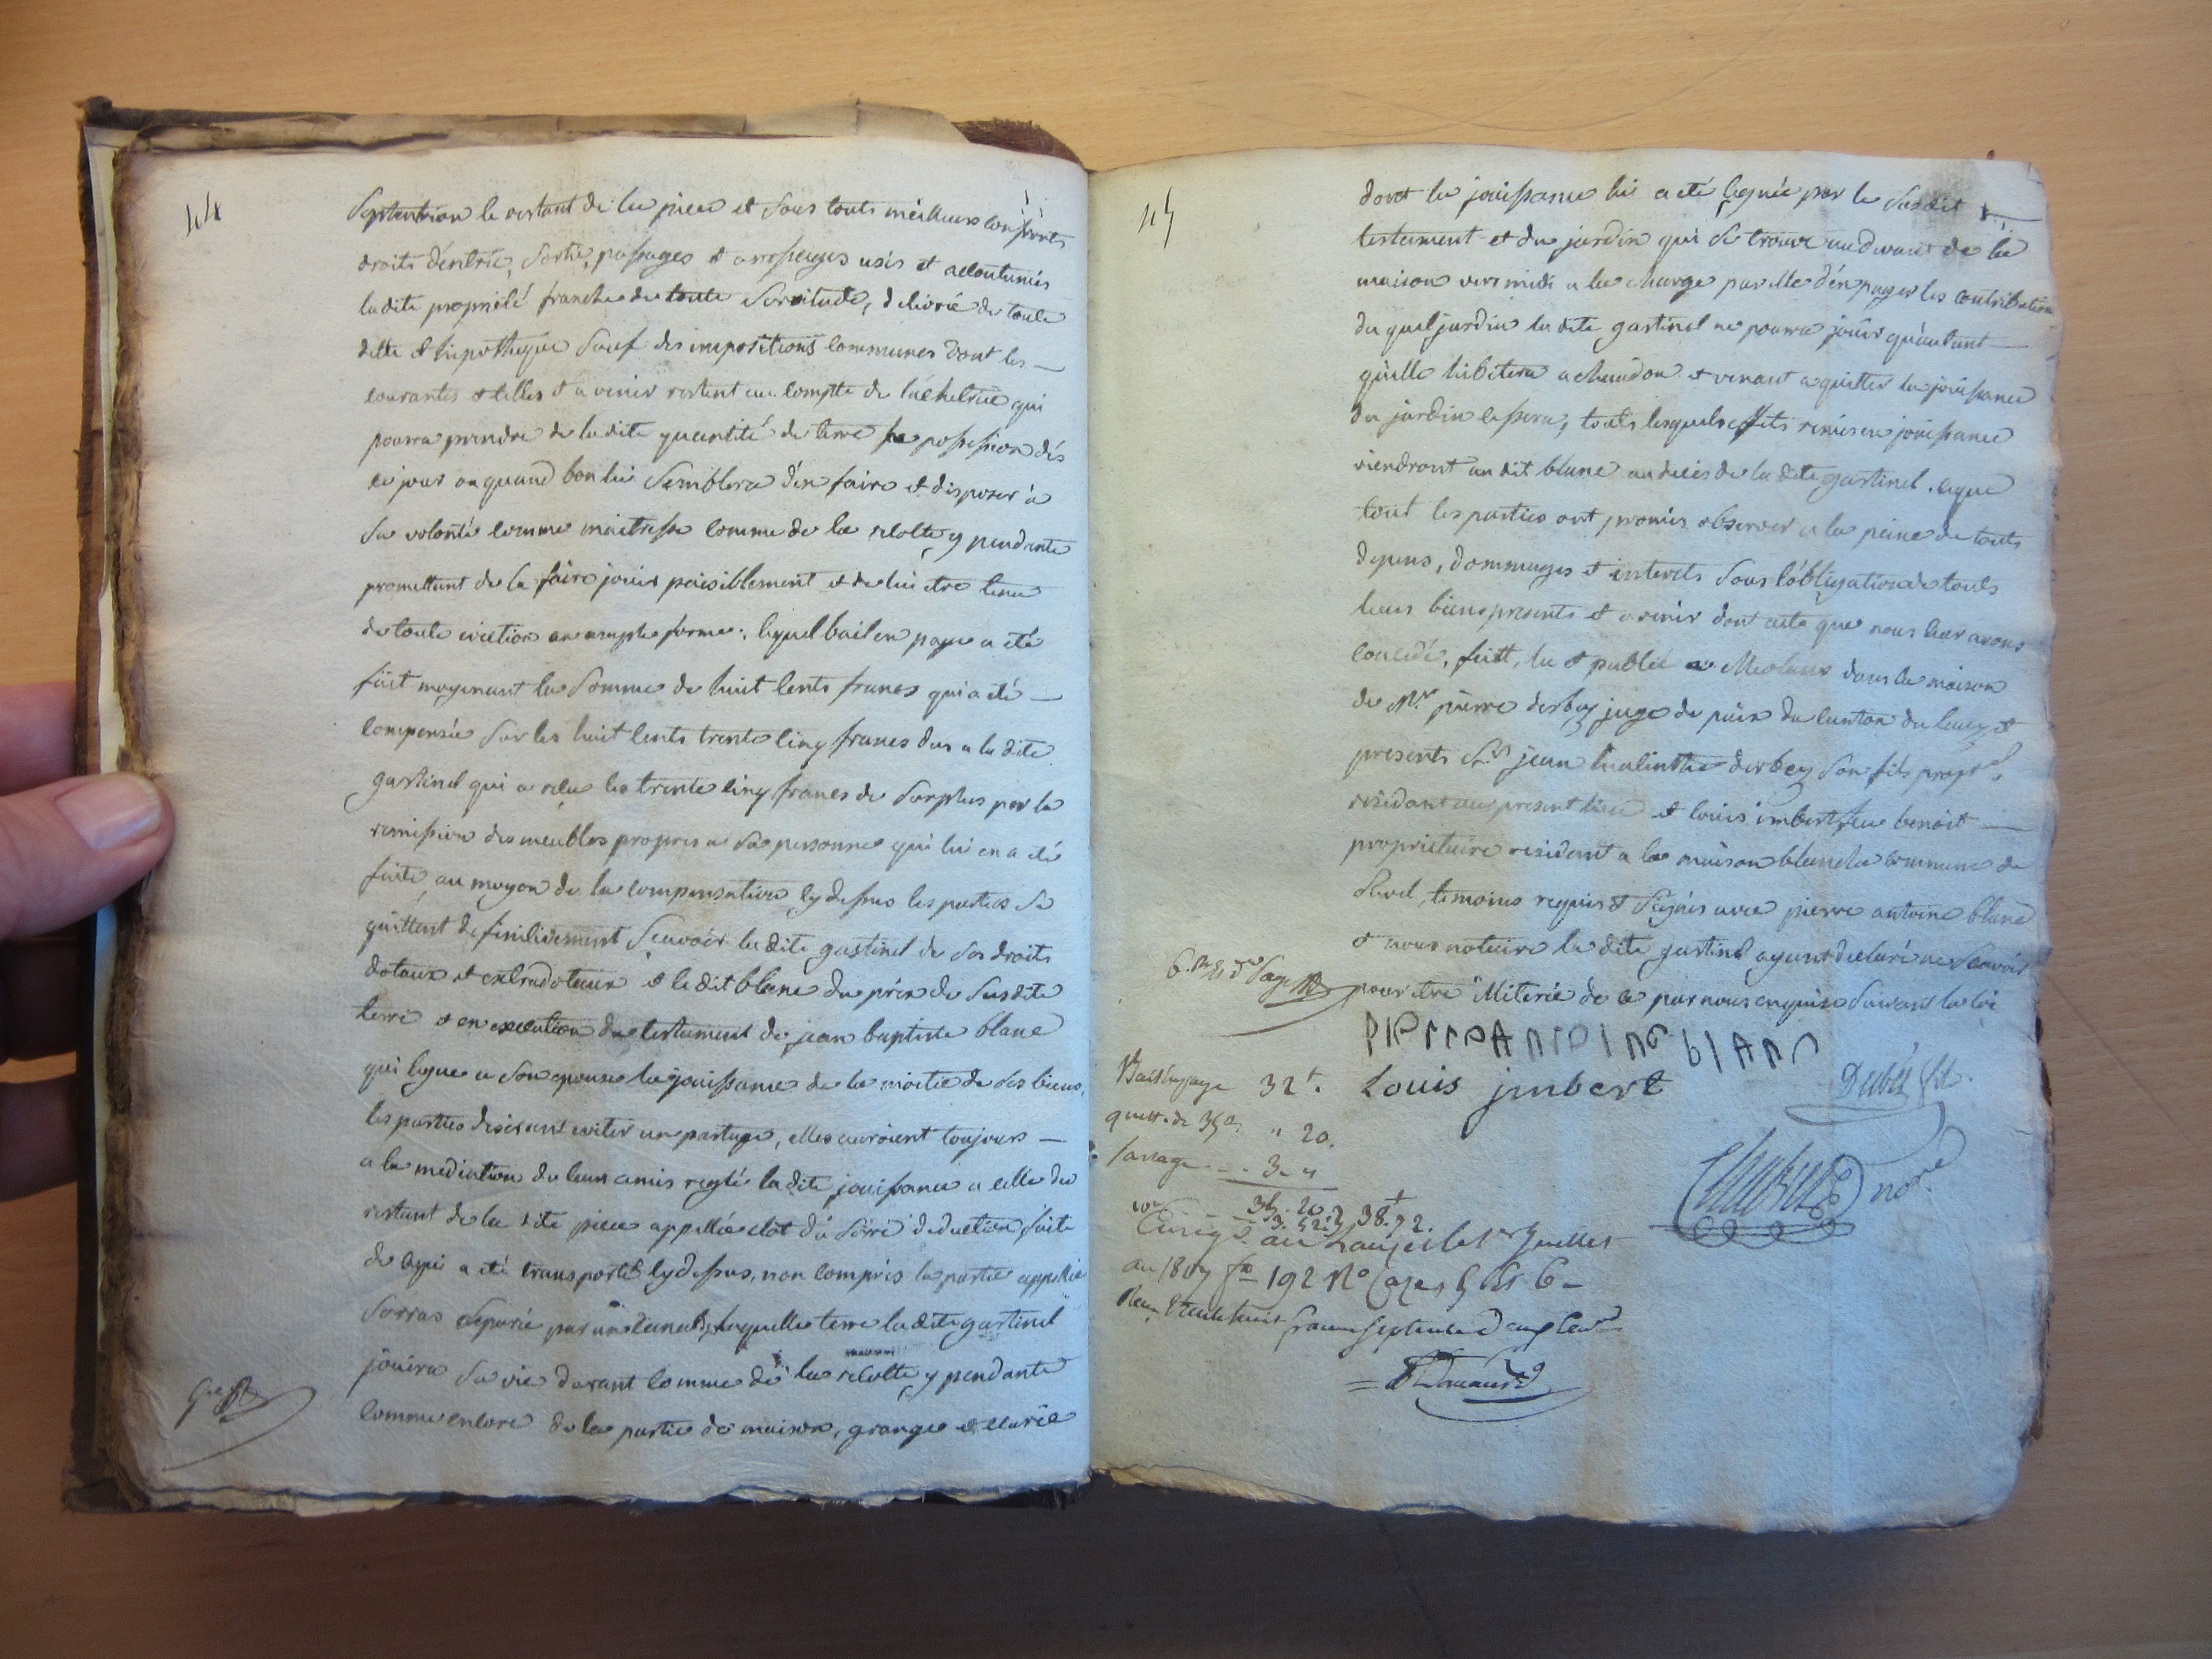 44
Septentrion le restant de la piece et sous touts meilleurs confronts
droits d'entrée, sortie, passages et arrosages usés et acoutumés
ladite proprieté franche de toute servitude, delivrée de toute
dette et hipotheque sauf des impositions communes dont les
courantes et celles a venir restent au comptte de l'achetrice qui
pourra prendre de ladite quantité de terre possession dés
ce jour ou quand bon lui semblera d'en faire et disposer à
sa volonté comme maitresse comme de la recolte y pendante
promettant de la faire jouir paisiblement et de lui etre tenu
de toute eviction en ample forme; lequel bail en paye a eté
fait moyenant la somme de huit cents francs qui a eté
compensée sur les huit cents trente cinq francs dus a la dite
gastinel qui a reçu les trente cinq francs de surplus par la
remission des meubles propres a sa personne qui lui en a eté
faite, au moyen de la compensation cy dessus les parties se
quittent definitivement scavoir la dite gastinel de ses droits
dotaux et extradotaux et le dit blanc du prix de susdite
terre et en execution du testament de jean baptiste blanc
qui legue a son epouse la jouissance de la moitié de ses biens,
les parties desirant eviter un partage, elles auroient toujours
a la mediation de leurs amis reglé ladite jouissance a celle du
restant de la dite piece appellée clot du serre deduction faite
de ce qui a eté transporté cy dessus, non compris la partie appellée
Sorras separée par un canal, laquelle terre ladite gastinel
jouira sa vie durant comme de la recolte y pendante
comme encore de la partie de maison, grange et ecurie
45
dont la jouissance lui a eté leguée par le susdit
testament et du jardin qui se trouve au devant de la
maison vers midi a la charge par elle d'en payer les contributions
du quel jardin la dite gastinel ne pourra jouir qu'autant
qu'elle habitera a chaudon et venant a quitter la jouissance
du jardin cessera, touts lesquels effets remis en jouissance
viendront au dit blanc au decés de la dite gastinel. ce que
tout les parties ont promis observer a la peine de touts
depens, dommages et interets sous l'obligation de touts
leurs biens presents et a venir dont acte que nous leur avons
concedé, fait, lu et publié a Meolans dans la maison
de Mr pierre derbez juge de paix du canton du lauzet
presents Srs jean hialinthe derbez son fils propre
residant au present lieu et louis imbert feu benoit
proprietaire residant a la maison blanche commune de
Revel, temoins requis et signés avec pierre antoine blanc
et nous notaire la dite gastinel ayant declaré ne scavoir
pour etre iliterée de ce par nous enquise suivant la loi
PIerre ANtoINe blANc
Louis jmbert
Derbés fils
not.re
Bail en paye 32 t.
quitt. de 35 " 20.
3 "
35. 20
3. 52 38. 72.
Enregé. au Lauzet le 1er Juillet
an 1807 fo 192 No Cases 5 et 6
Reçu trente huit francs septante deux centes